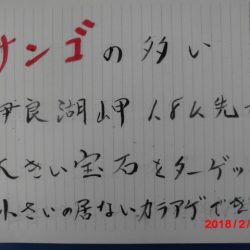 サンゴの多い
伊良湖岬 沖 先
大きい宝石をターゲッ
小さいの居ないカラアゲでき
2018/2/